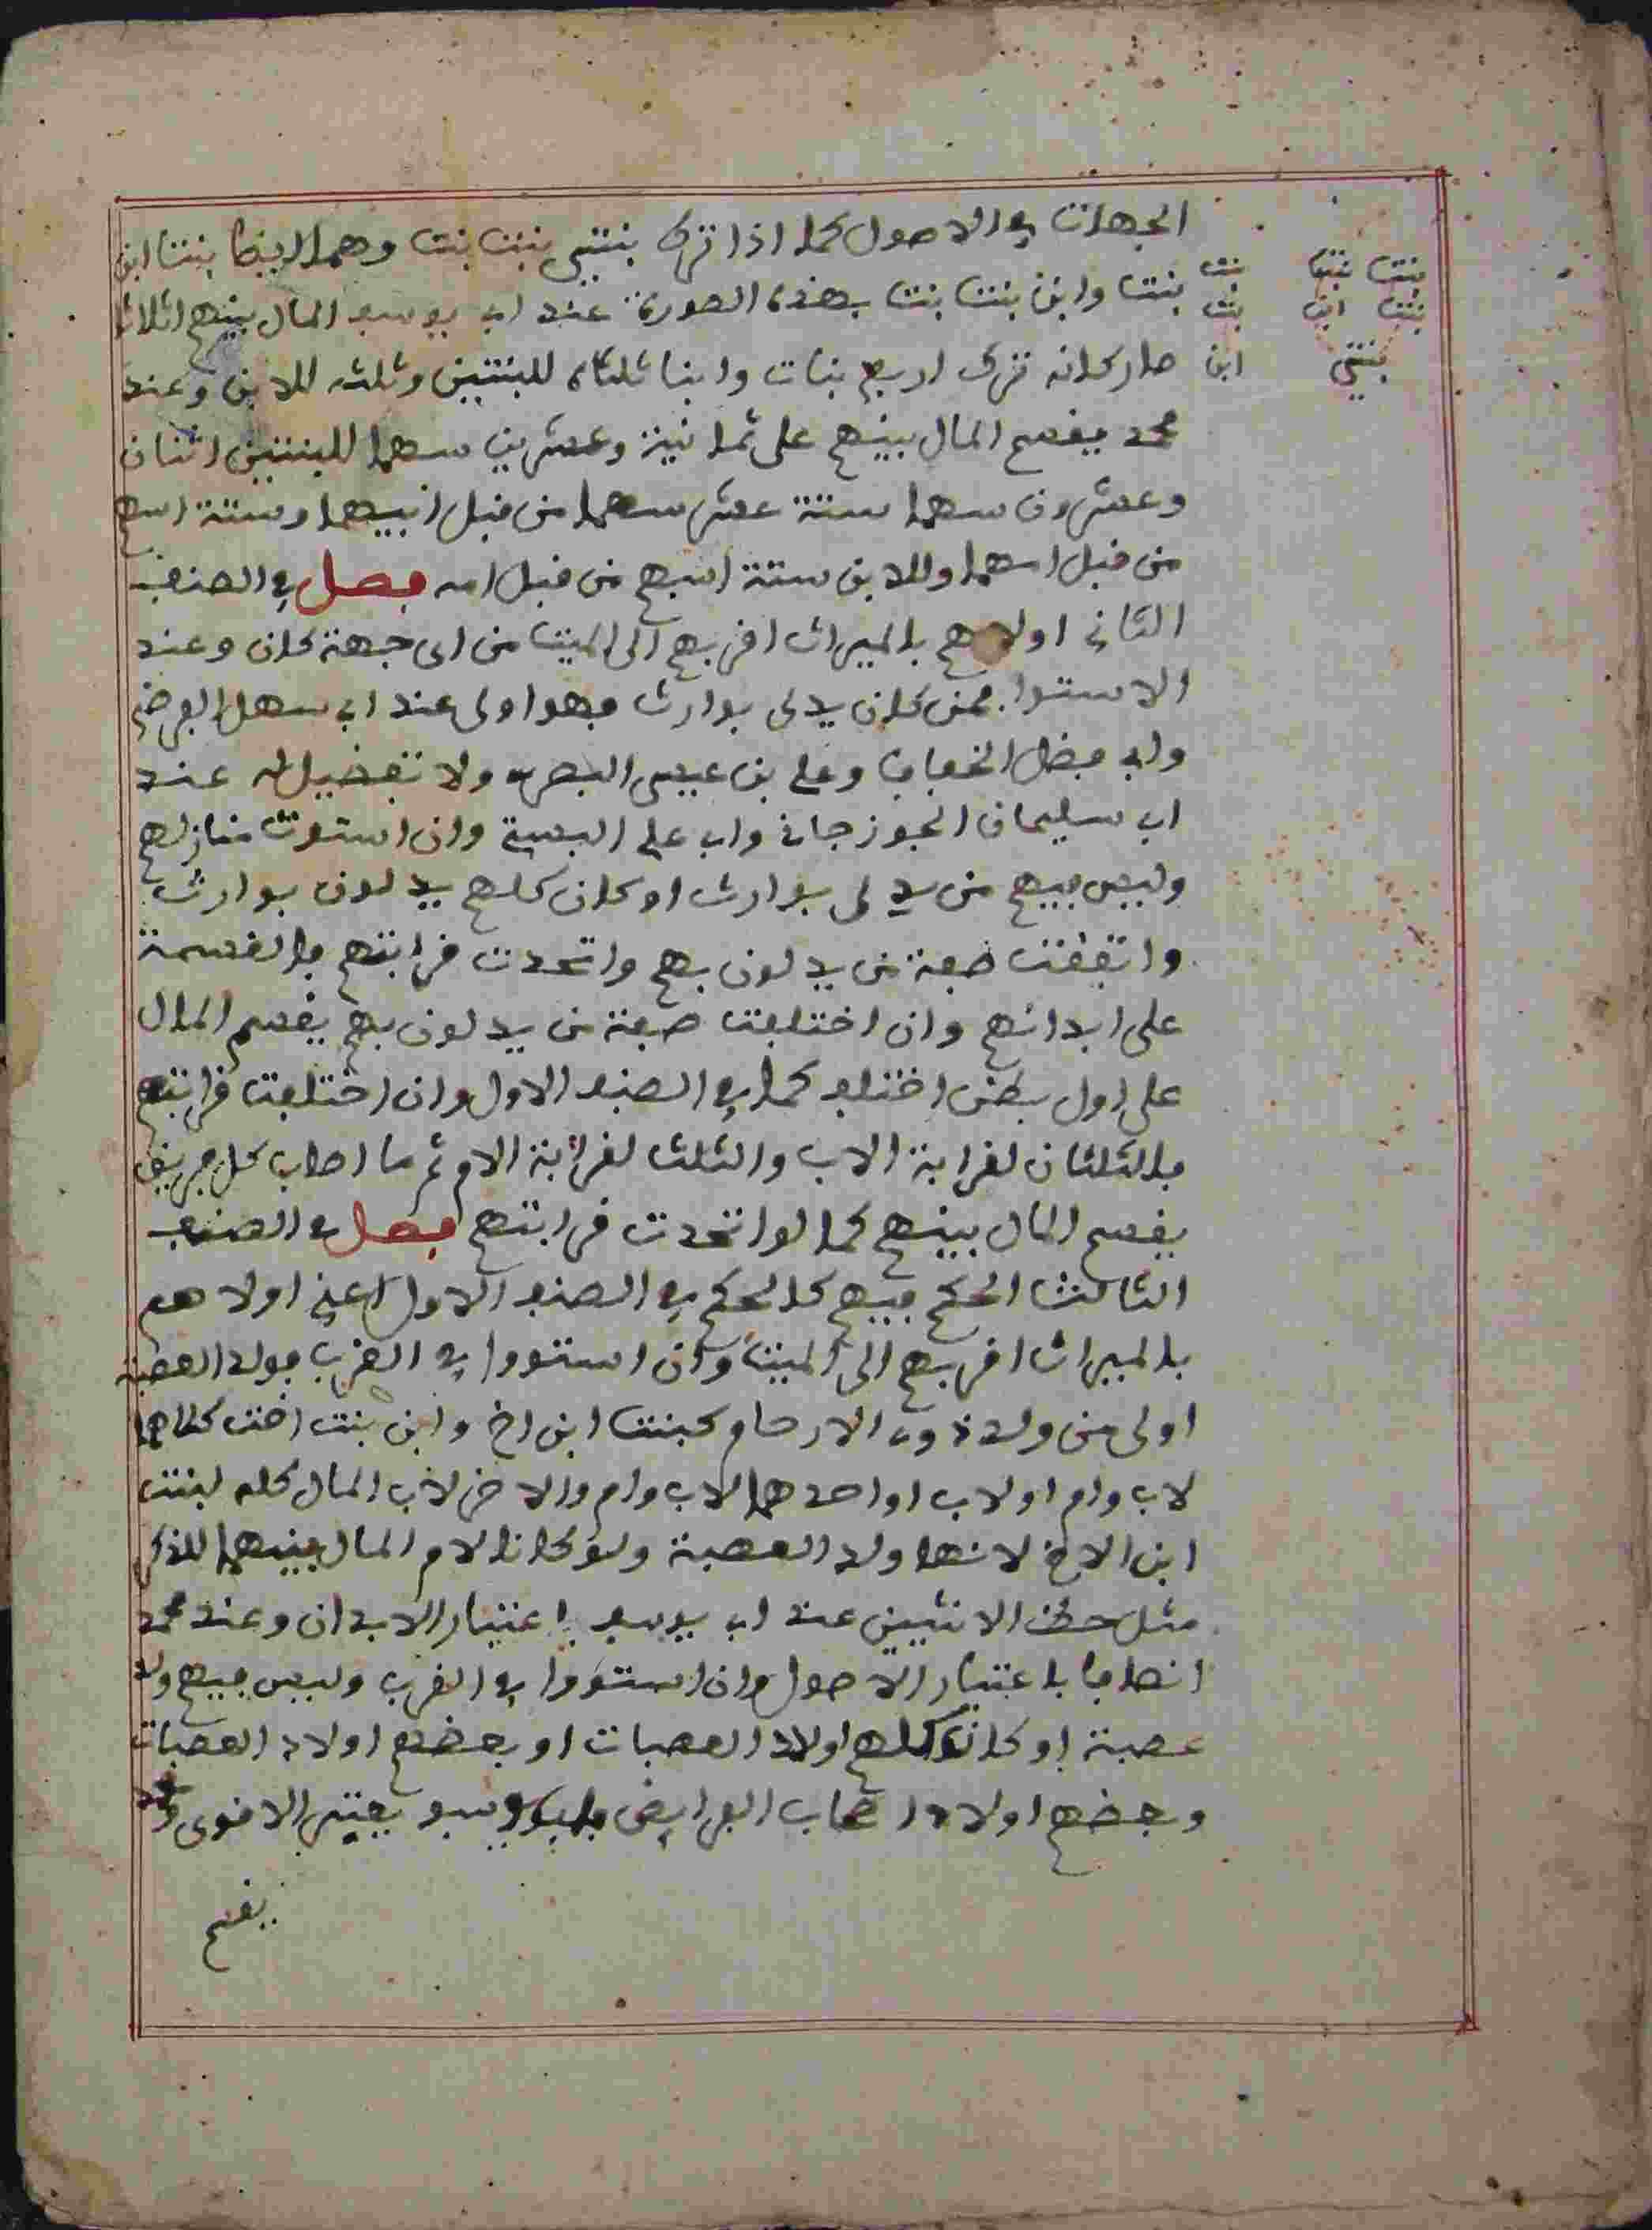 الجهات في الاصول كما اذا ترك بنتي بنت بنت وهما ايضا بنتا ابن
بنت وابن بنت بنت بهذه الصورة عند ابي يوسف المال بينهم اثلاثا
صار كانه ترك اربع بنات وابنا ثلثاه للبنتين وثلثه للابن وعند
محمد يقسم المال بينهم على ثمانية وعشرين سهما للبنتين اثنان
وعشرون سهما ستة عشر سهما من قبل ابيهما وستة اسهم
من قبل امهما وللابن ستة اسهم من قبل امه فصل في الصنف
الثاني اولاهم بالميراث اقربهم الى الميت من اي جهة كان وعند
الاستوا فمن كان يدلى بوارث فهو اولى عند ابي سهل الفرضي
وابي فضل الخفاف وعلي بن عيسى البصري ولا تفضيل له عند
ابي سليمان الجوزجاني وابي علي البستي وان استوت منازلهم
وليس فيهم من يدلى بوارث او كان كلهم يدلون بوارث
واتفقت صفة من يدلون بهم واتحدت قرابتهم فالقسمة
على ابدانهم وان اختلفت صفة من يدلون بهم يقسم المال
على اول بطن اختلف كما في الصنف الاول وان اختلفت قرابتهم
فالثلثان لقرابة الاب والثلث لقرابة الام ثم ما اصاب كل فريق
يقسم المال بينهم كما لو اتحدت قرابتهم فصل في الصنف
الثالث الحكم فيهم كالحكم في الصنف الاول اعني اولاهم
بالميراث اقربهم الى الميت وان استووا في القرب فولد العصبة
اولى من ولد ذوي الارحام كبنت ابن اخ وابن بنت اخت كلاهما
لاب وام او لاب او احدهما لاب وام والاخر لاب المال كله لبنت
ابن الاخ لانها ولد العصبة ولو كانا لام المال بينهما للذكر
مثل حظ الانثيين عند ابي يوسف باعتبار الابدان وعند محمد
انصافا باعتبار الاصول وان استووا في القرب وليس فيهم ولد
عصبة او كان كلهم اولاد العصبات او بعضهم اولاد العصبات
وبعضهم اولاد اصحاب الفرايض فابو يوسف يعتبر الاقوى ومحمد
يقسم
بنت بنت بنت
بنت ابن بنت
بنتي ابن